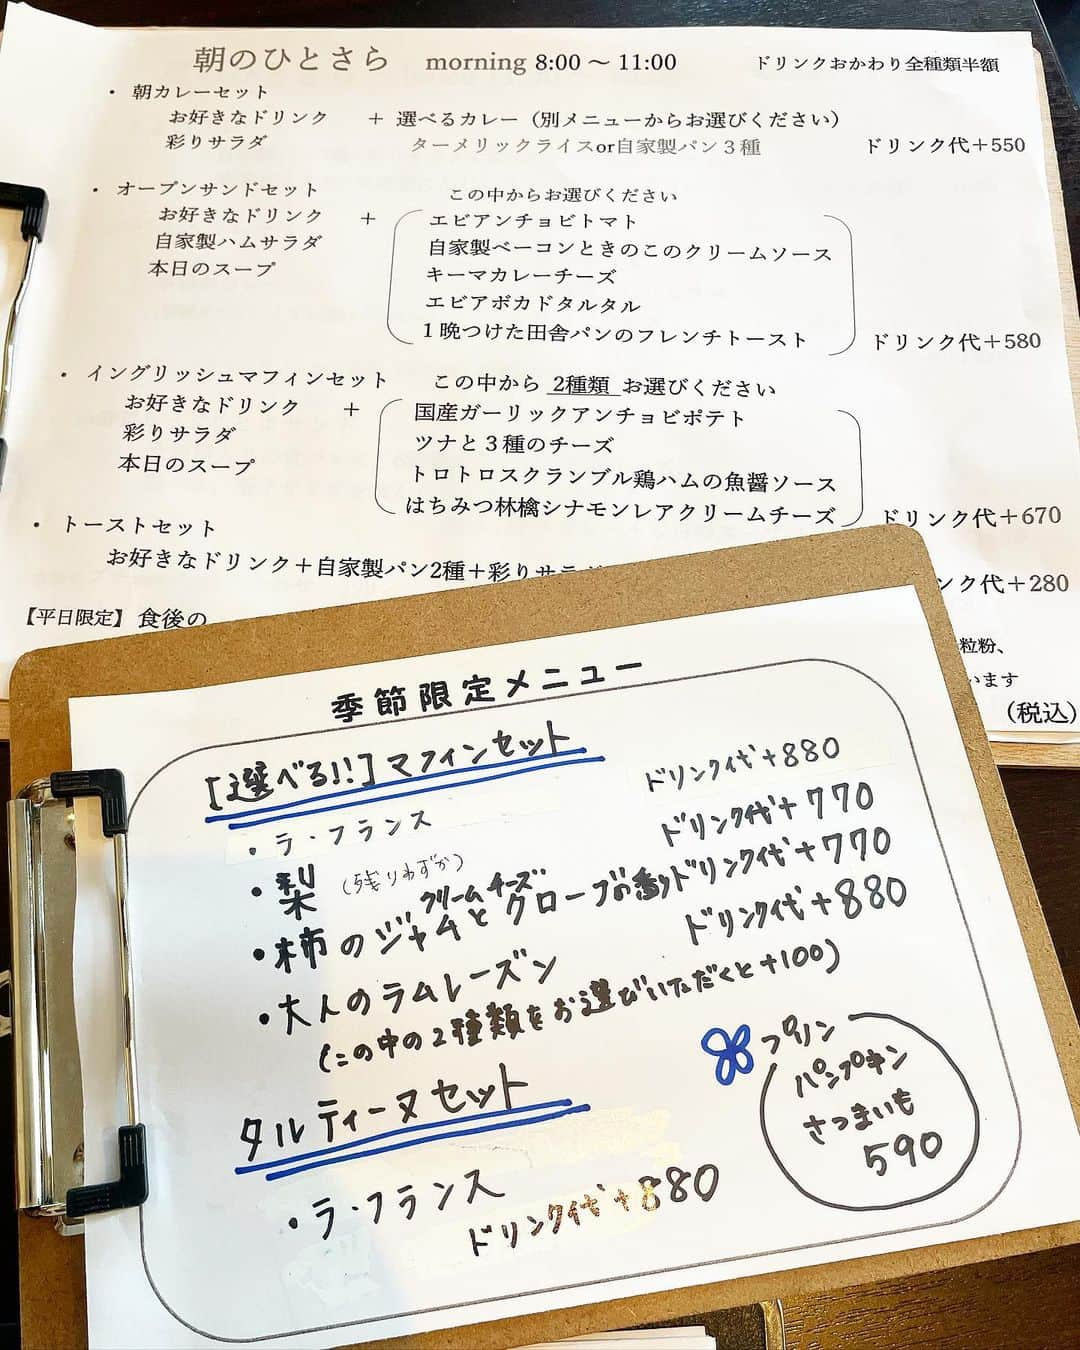 朝のひとさら morning 8:00 〜 11:00 ドリンクおかわり全種類半額
・ 朝カレーセット
お好きなドリンク ＋ 選べるカレー（別メニューからお選びください）
彩りサラダ ターメリックライスor自家製パン３種 ドリンク代＋550
・ オープンサンドセット この中からお選びください
お好きなドリンク ＋ エビアンチョビトマト
自家製ハムサラダ 自家製ベーコンときのこのクリームソース
本日のスープ キーマカレーチーズ
エビアボカドタルタル
１晩つけた田舎パンのフレンチトースト ドリンク代＋580
・ イングリッシュマフィンセット この中から 2種類 お選びください
お好きなドリンク ＋ 国産ガーリックアンチョビポテト
彩りサラダ ツナと３種のチーズ
本日のスープ トロトロスクランブル鶏ハムの魚醤ソース
はちみつ林檎シナモンレアクリームチーズ ドリンク代＋670
・ トーストセット
お好きなドリンク＋自家製パン2種＋彩りサラダ ンク代＋280
【平日限定】 食後の
粒粉、
います
（税込）
季節限定メニュー
[選べる!!] マフィンセット
・ラ・フランス ドリンク代+880
・梨 (残りわずか) ドリンク代+770
・柿のジャムとクリームチーズ クローブの香り ドリンク代+770
・大人のラムレーズン ドリンク代+880
(この中の2種類をお選びいただくと+100)
タルティーヌセット
・ラ・フランス
ドリンク代+880
プリン
パンプキン
さつまいも
590